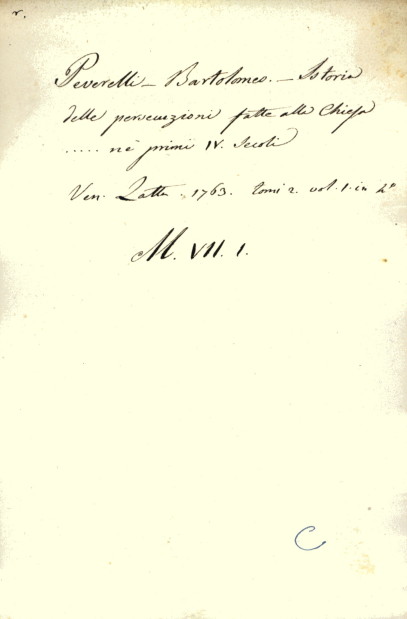 r.
Peverelli - Bartolomeo. - Istoria
delle persecuzioni fatte alla Chiesa
..... nè primi IV. Secoli
Ven. Zatta. 1763. tomi 2. vol. 1. in 4°
M. VII. 1.
C